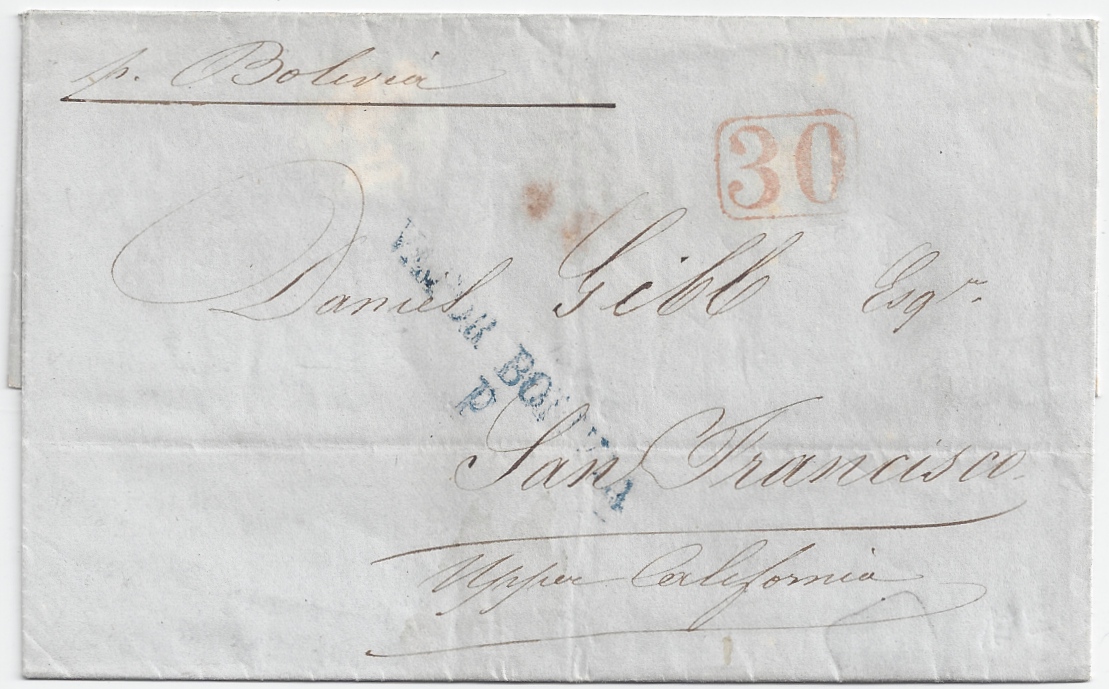 p. Bolivia
30
Daniel Gibb Esqr.
VAPOR BOLIVIA
P
San Francisco.
Upper California